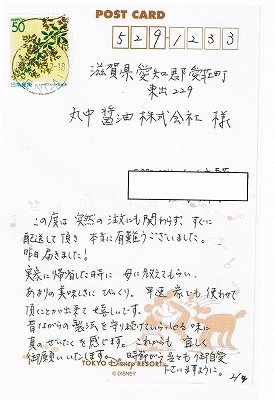 POST CARD
50
日本郵便
NIPPON
5291233
滋賀県愛知郡愛荘町
東出229
丸中醤油株式会社 様
この度は突然の注文にも関わらず、すぐに
配送して頂き 本当に有難うございました。
昨日届きました!
実家に帰省した時に 母に教えてもらい、
あまりの美味しさに びっくり。早速 家でも 使わせて
頂くことが出来て 嬉しいです。
昔ながらの製法を守り続けていらっしゃる味に
真のぜいたくを感じます。これからも 宜しく
御願いいたします。 時節がら 皆とも御自愛
下さいますように。
2/4
TOKYO Disney RESORT
©DISNEY